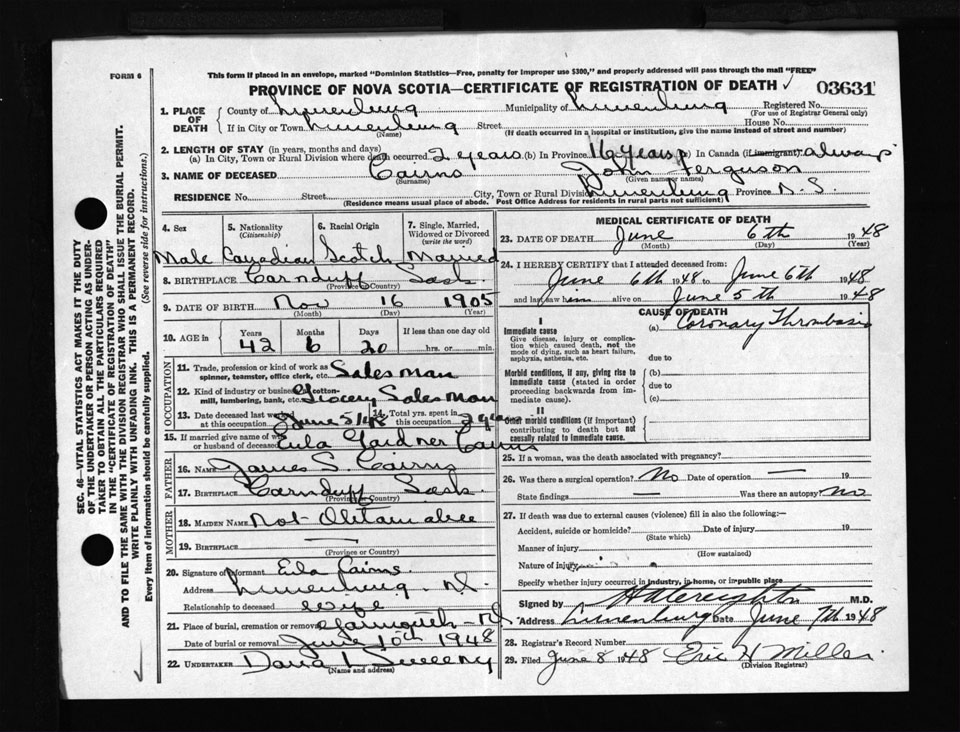 FORM 6
This form if placed in an envelope, marked "Dominion Statistics—Free, penalty for improper use $300," and properly addressed will pass through the mail "FREE"
PROVINCE OF NOVA SCOTIA—CERTIFICATE OF REGISTRATION OF DEATH 03631
1. PLACE OF DEATH
County of Lunenburg Municipality of Lunenburg Registered No.
(For use of Registrar General only)
If in City or Town Lunenburg Street House No.
(Name) (If death occurred in a hospital or institution, give the name instead of street and number)
2. LENGTH OF STAY (in years, months and days)
(a) In City, Town or Rural Division where death occurred 2 years (b) In Province 16 years (c) In Canada (if immigrant) always
3. NAME OF DECEASED Cairns John Ferguson
(Surname) (Given name or names)
RESIDENCE No. Street City, Town or Rural Division Lunenburg Province N. S.
(Residence means usual place of abode. Post Office Address for residents in rural parts not sufficient)
4. Sex 5. Nationality (Citizenship) 6. Racial Origin 7. Single, Married, Widowed or Divorced (write the word)
Male Canadian Scotch Married
8. BIRTHPLACE Carnduff Sask.
(Province or Country)
9. DATE OF BIRTH Nov 16 1905
(Month) (Day) (Year)
10. AGE in Years Months Days If less than one day old
42 6 20 hrs. or min.
OCCUPATION
11. Trade, profession or kind of work as spinner, teamster, office clerk, etc. Salesman
12. Kind of industry or business, as cotton-mill, lumbering, bank, etc. Grocery Salesman
13. Date deceased last worked at this occupation June 5/48 14. Total yrs. spent in this occupation
15. If married give name of wife or husband of deceased Eula Gardner Cairns
FATHER
16. NAME James S. Cairns
17. BIRTHPLACE Carnduff Sask.
(Province or Country)
MOTHER
18. MAIDEN NAME Not Obtainable
19. BIRTHPLACE —
(Province or Country)
20. Signature of informant Eula Cairns
Address Lunenburg, N.S.
Relationship to deceased wife
21. Place of burial, cremation or removal Yarmouth - N.S.
Date of burial or removal June 10th 1948
22. UNDERTAKER Sweeny
(Name and address)
MEDICAL CERTIFICATE OF DEATH
23. DATE OF DEATH June 6th 1948
(Month) (Day) (Year)
24. I HEREBY CERTIFY that I attended deceased from:
June 6th 1948 to June 6th 1948
and last saw him alive on June 5th 1948
CAUSE OF DEATH
I
Immediate cause
Give disease, injury or complication which caused death, not the mode of dying, such as heart failure, asphyxia, asthenia, etc.
(a) Coronary Thrombosis
due to
Morbid conditions, if any, giving rise to immediate cause (stated in order proceeding backwards from immediate cause).
(b)
due to
(c)
II
Other morbid conditions (if important) contributing to death but not causally related to immediate cause.
25. If a woman, was the death associated with pregnancy?
26. Was there a surgical operation? No Date of operation — 19
State findings — Was there an autopsy? No
27. If death was due to external causes (violence) fill in also the following:—
Accident, suicide or homicide? Date of injury 19
(State which)
Manner of injury
(How sustained)
Nature of injury
Specify whether injury occurred in industry, in home, or in public place
Signed by M.D.
Address Lunenburg Date June 7th 1948
28. Registrar's Record Number
29. Filed June 8 1948 Eric H Miller
(Division Registrar)
SEC. 46—VITAL STATISTICS ACT MAKES IT THE DUTY
OF THE UNDERTAKER OR PERSON ACTING AS UNDER-
TAKER TO OBTAIN ALL THE PARTICULARS REQUIRED
IN THE "CERTIFICATE OF REGISTRATION OF DEATH"
AND TO FILE THE SAME WITH THE DIVISION REGISTRAR WHO SHALL ISSUE THE BURIAL PERMIT.
WRITE PLAINLY WITH UNFADING INK. THIS IS A PERMANENT RECORD.
Every item of information should be carefully supplied. (See reverse side for instructions.)